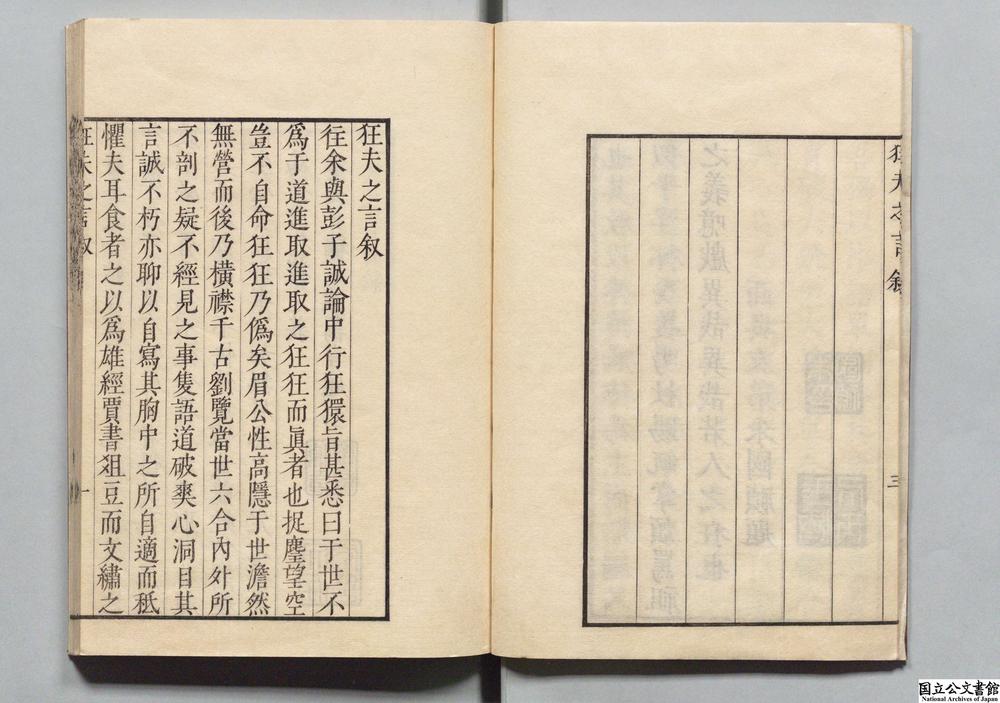 狂夫之言敘
三
狂夫之言叙
往余與彭子誠論中行狂獧旨甚悉曰于世不
爲于道進取進取之狂狂而眞者也捉麈望空
豈不自命狂狂乃僞矣眉公性高隱于世澹然
無營而後乃橫襟千古劉覽當世六合內外所
不剖之疑不經見之事隻語道破爽心洞目其
言誠不朽亦聊以自寫其胸中之所自適而秪
懼夫耳食者之以爲雄經賈書俎豆而文繡之
狂夫之言叙
一
国立公文書館
National Archives of Japan